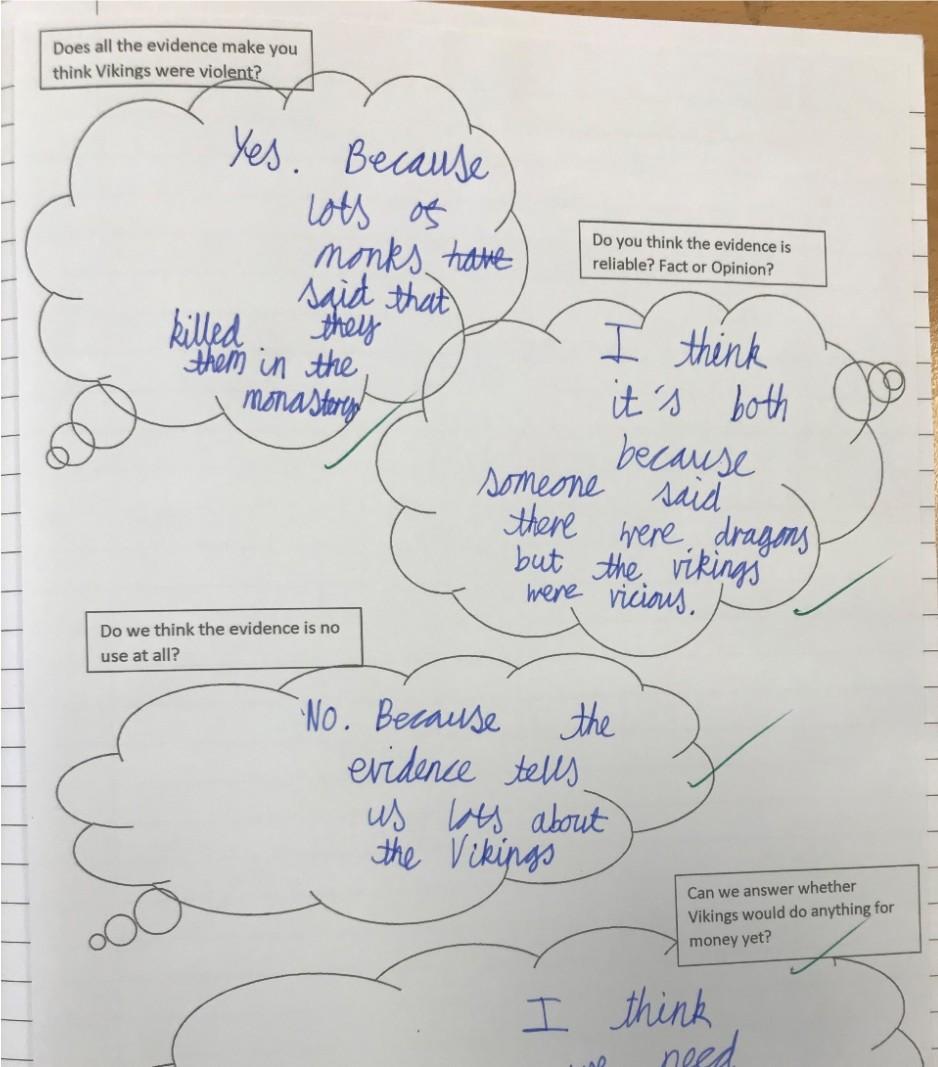 Does all the evidence make you
think Vikings were violent?
Yes. Because
lots of
monks have
said that
killed they
them in the
monastery
Do you think the evidence is
reliable? Fact or Opinion?
I think
it's both
because
someone said
there were dragons
but the vikings
were vicious.
Do we think the evidence is no
use at all?
No. Because the
evidence tells
us lots about
the Vikings
Can we answer whether
Vikings would do anything for
money yet?
I think
we need